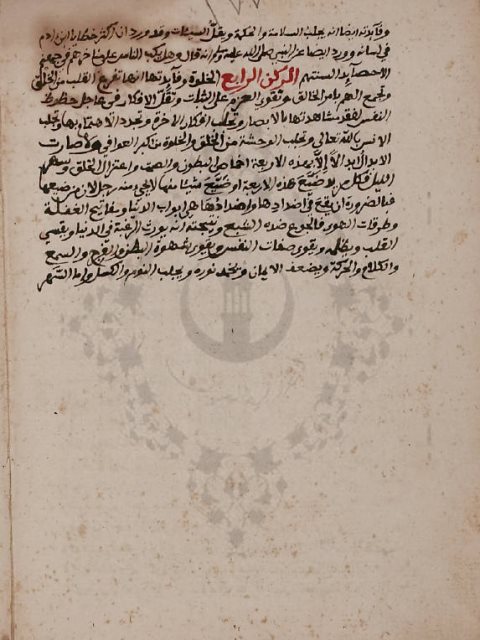 وفايدته ايضا انه يجلب السلامة والحكمة ويقل السيئات وقد ورد ان اكثر خطايا ابن ادم
في لسانه وورد ايضا عن النبي صلى الله عليه وسلم انه قال وهل يكب الناس على مناخرهم في جهنم
الا حصايد السنتهم الركن الرابع الخلوة وفايدتها انها تفرغ القلب من الخلق
وتجمع الهم بامر الخالق وتقوي العزم على الثبات وتقل الافكار في عاجل حظوظ
النفس لفقد مشاهدتها بالابصار وتجلب افكار الاخرة وتجدد الاهتمام بها وتجلب
الانس بالله تعالى وتجلب الوحشة من الخلق والخلوة من اكبر العوافي وما صارت
الابدال ابدالا الا بهذه الاربعة اخماص البطون والصمت واعتزال الخلق وسهر
الليل فكل من ضيع هذه الاربعة او ضيع شيئا منها لا يجي منه رجل لان من ضيعها
فبالضرورة ان يقع في اضدادها واضدادها هي ابواب الدنيا ومفاتيح الغفلة
وطرقات الهوى فالجوع ضده الشبع ونتيجته انه يورث الرغبة في الدنيا ويقسي
القلب ويظلمه ويقوي صفات النفس ويقوي شهوة البطن والفرج والسمع
والكلام والحركة ويضعف الايمان ويخمد نوره ويجلب النوم والكسل واما السهر